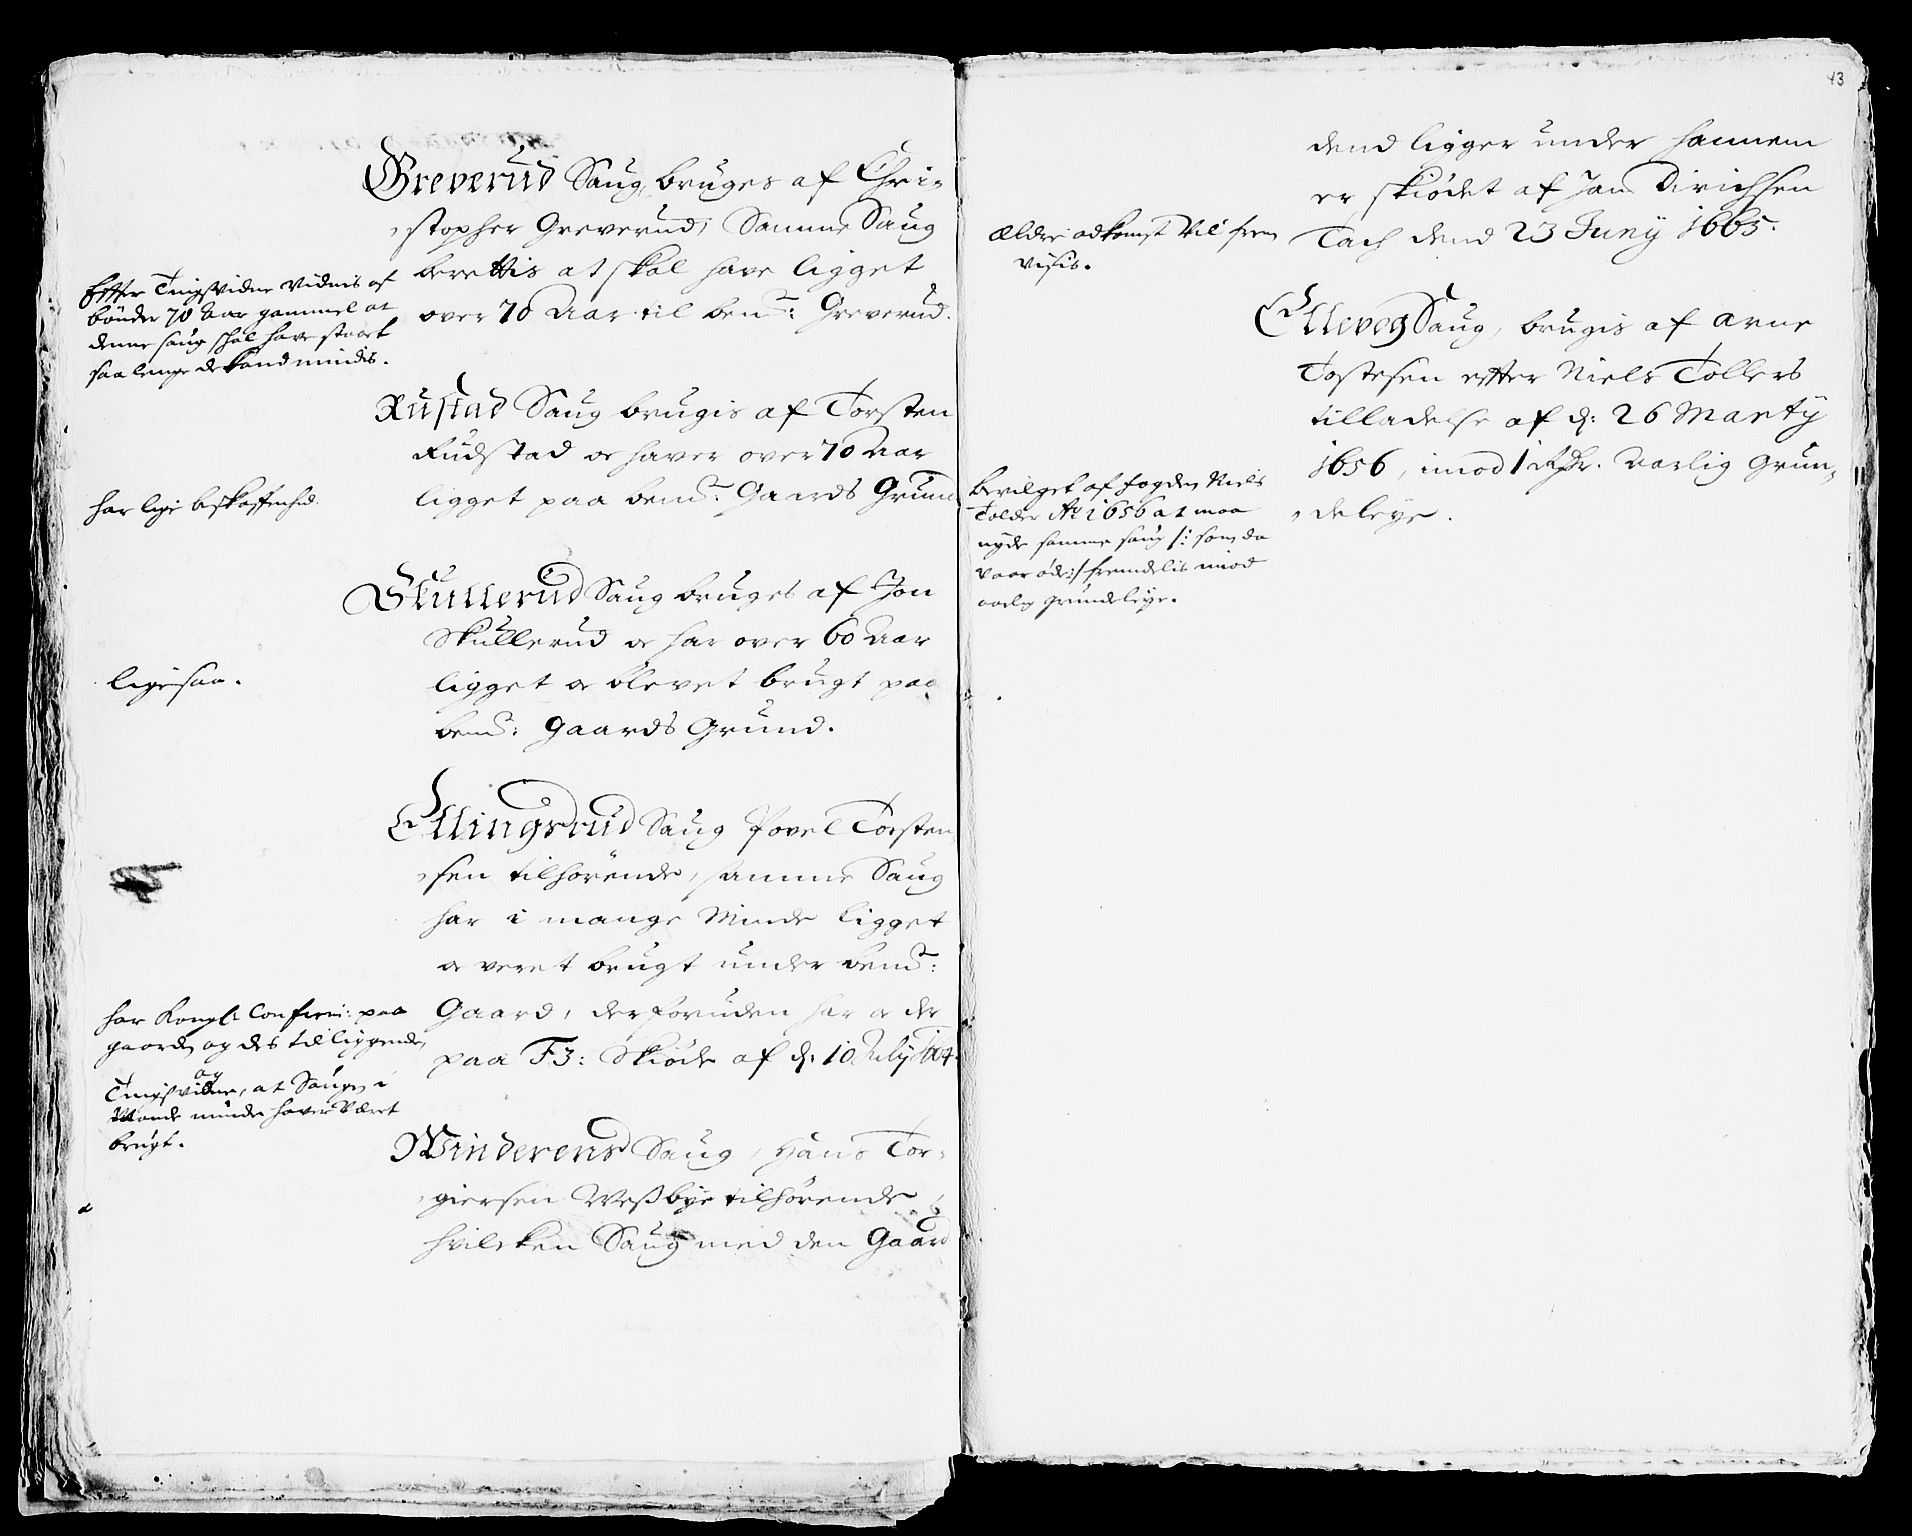 Greverud Saug, bruges af Chri-
stopher Greverud, Samme Saug
berettis at skal have ligget
over 70 Aar til bem.te Greverud.
Effter Tingsvidne vidnis af
bønder 70 Aar gammel at
denne saug skal have staaet
saa lenge de kand mindis.
Rustad Saug brugis af Torsten
Rudstad oc haver over 70 Aar
ligget paa bem.te Gaards Grund
har lige beskaffenhed.
Skullerud Saug bruges af Jon
Skullerud oc har over 60 Aar
ligget oc blevet brugt paa
bem.te: Gaards Grund.
ligesaa.
Ellingsrud Saug Povel Torsten
sen tilhørende, samme Saug
har i mange Minde ligget
oc veret brugt under bem.te:
Gaard, der foruden har oc der
paa F3: Skiøde af d: 10 July 1664.
har Kongl: Confirm: paa
gaarden og des tilliggende,
og
Tingsvidne, at Saugen i
Mands minde haver veret
brugt.
Winderens Saug, Hans Tor-
giersen Weßbye tilhørende
hvilcken Saug med den Gaard
13
dend ligger under hannem
er skiødet af Jan Dirichsen
Tach dend 23 Juny 1665.
Ældre adkomst vil frem
visis.
Elleveg Saug, brugis af Arne
Tostesen effter Niels Tollers
tilladelse af d: 26 Marty
1656, imod 1 Rdr. Aarlig Grun-
deleye.
bevilget af fogden Niels
Tolder A.o 1656 at maa
nyde samme saug /: som da
vaar øde :/ fremdelis imod
aarlig grundeleye.